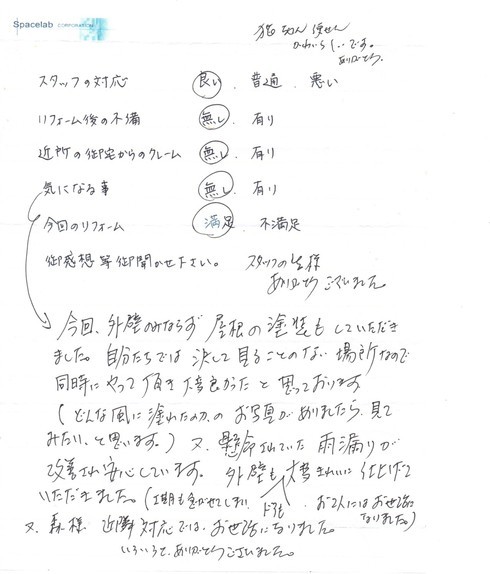 Spacelab CORPORATION
かわいらしいです。
ありがとう。
スタッフの対応 良い . 普通 . 悪い
リフォーム後の不備 無し . 有り
近所の御宅からのクレーム 無し . 有り
気になる事 無し . 有り
今回のリフォーム 満足 . 不満足
御感想等御聞かせ下さい。 スタッフの皆様
ありがとうございました。
今回、外壁のみならず 屋根の塗装も していただき
ました。自分たちでは 決して見ることのない 場所なので
同時にやって頂き 大変良かったと 思っております
(どんな風に塗れたのか、の お写真がありましたら、見て
みたい、と思います。) 又、懸念されていた 雨漏りが
改善され安心しています。 外壁も大変きれいに 仕上げて
いただきました。(工期も急がせてしまい お2人にはお世話に
なりました。)
ドアも
又、森様 近隣対応では、お世話になりました。
いろいろと、ありがとうございました。